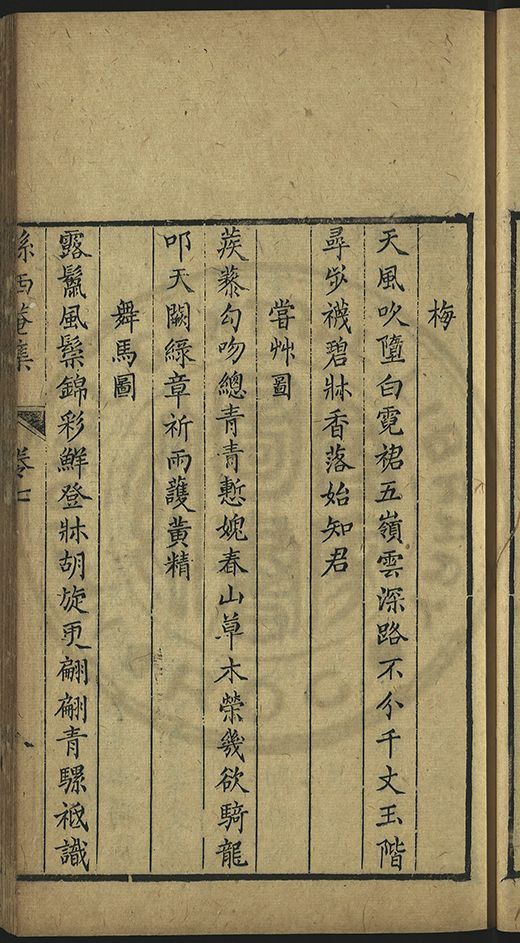 梅
天風吹墮白霓裙五嶺雲深路不分千丈玉階
尋步襪碧牀香落始知君
嘗艸圖
蒺藜勾吻總青青慙媿春山草木榮幾欲騎龍
叩天闕綠章祈雨護黃精
舞馬圖
露鬣風鬃錦彩鮮登牀胡旋更翩翩青騾祗識
孫西菴集
卷七